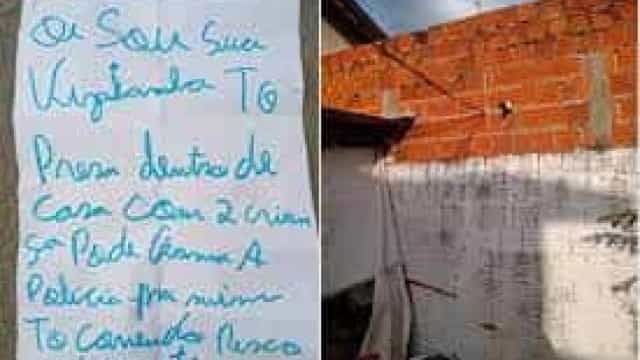 oi Sou Sua
Vizinha TO
Presa dentro de
casa Com 2 crian
ça Pode chama A
Policia pra mim
To Correndo Risco